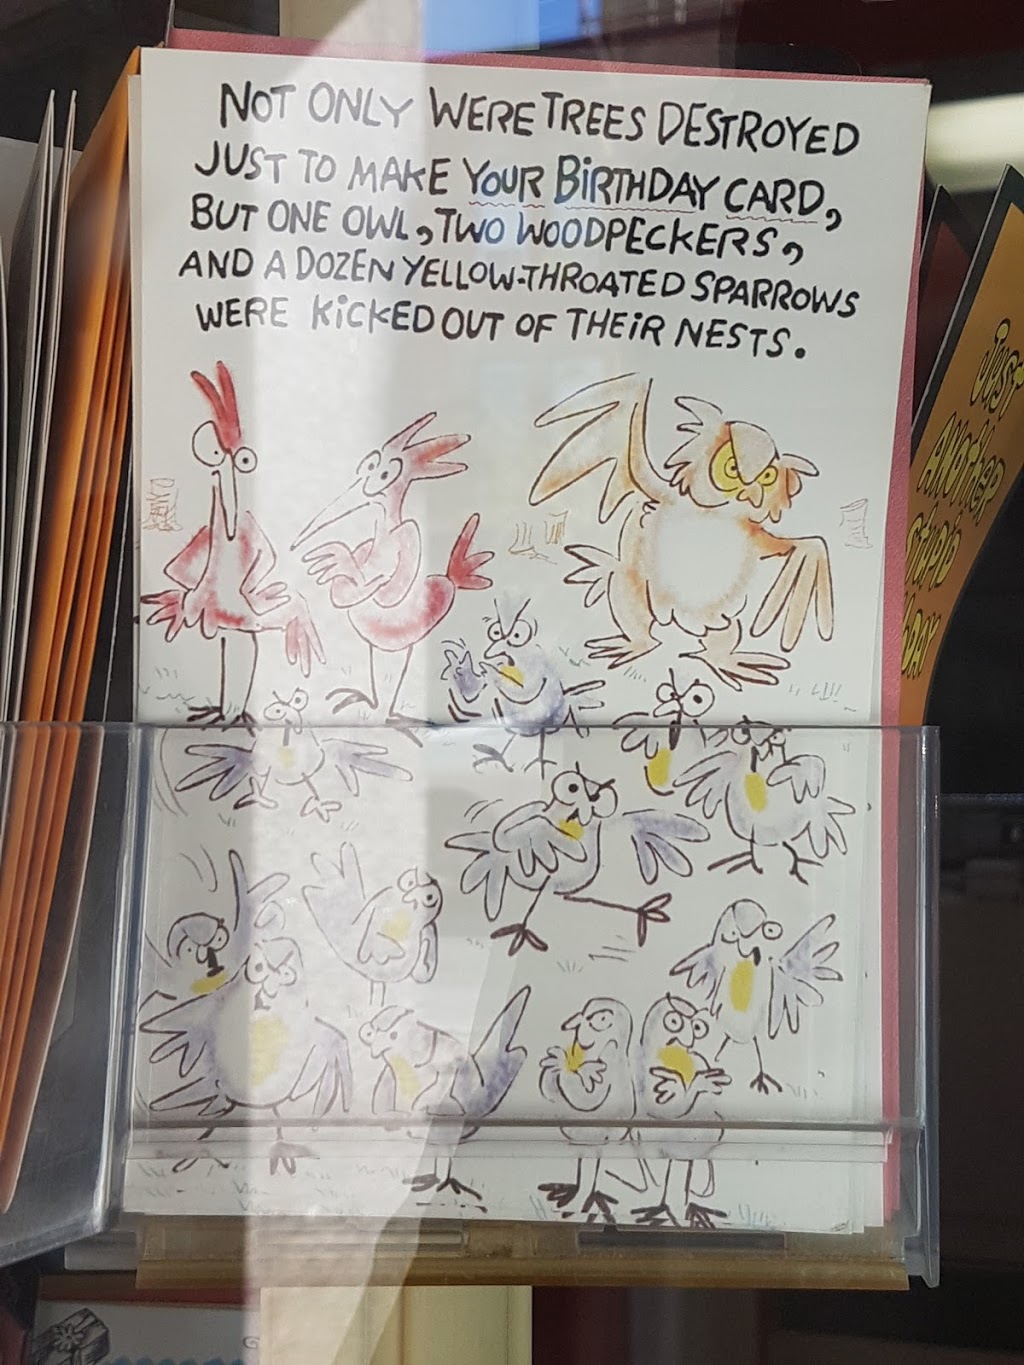 NOT ONLY WERE TREES DESTROYED
JUST TO MAKE YOUR BiRTHDAY CARD,
BUT ONE OWL, TWO WOODPECKERS,
AND A DOZEN YELLOW-THROATED SPARROWS
WERE KiCKED OUT OF THEiR NESTS.
JUST
ANOTHER
STUPID